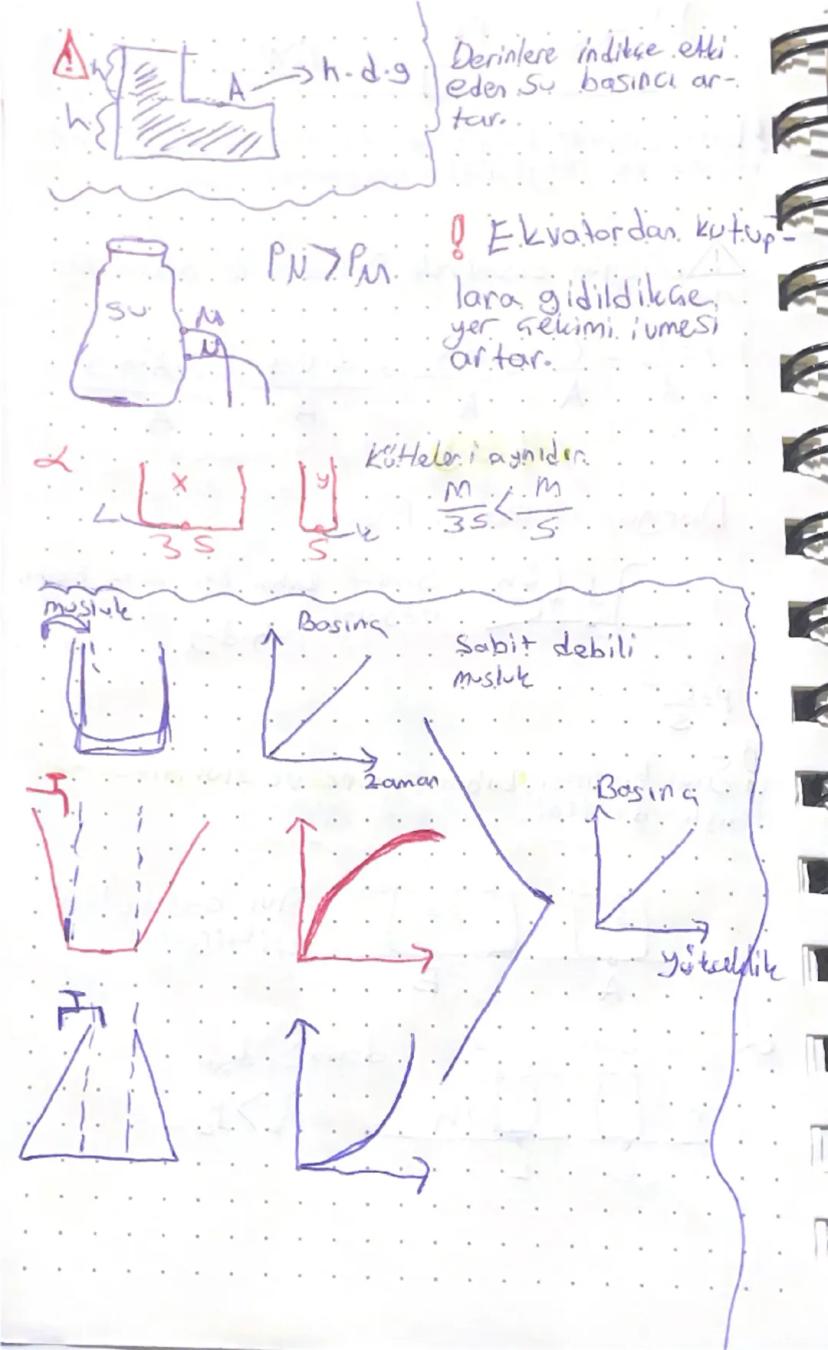 h
h
A → h.d.g
Derinlere indikçe etki
eden su basıncı ar-
tar.
su
M
N
P_N > P_M
! Ekvatordan kutup-
lara gidildikçe,
yer çekimi ivmesi
artar.
x
y
L
3S
S
K
Kütleleri aynıdır.
m/3S < m/S
musluk
Basınç
Zaman
Sabit debili
musluk
Basınç
yükseklik